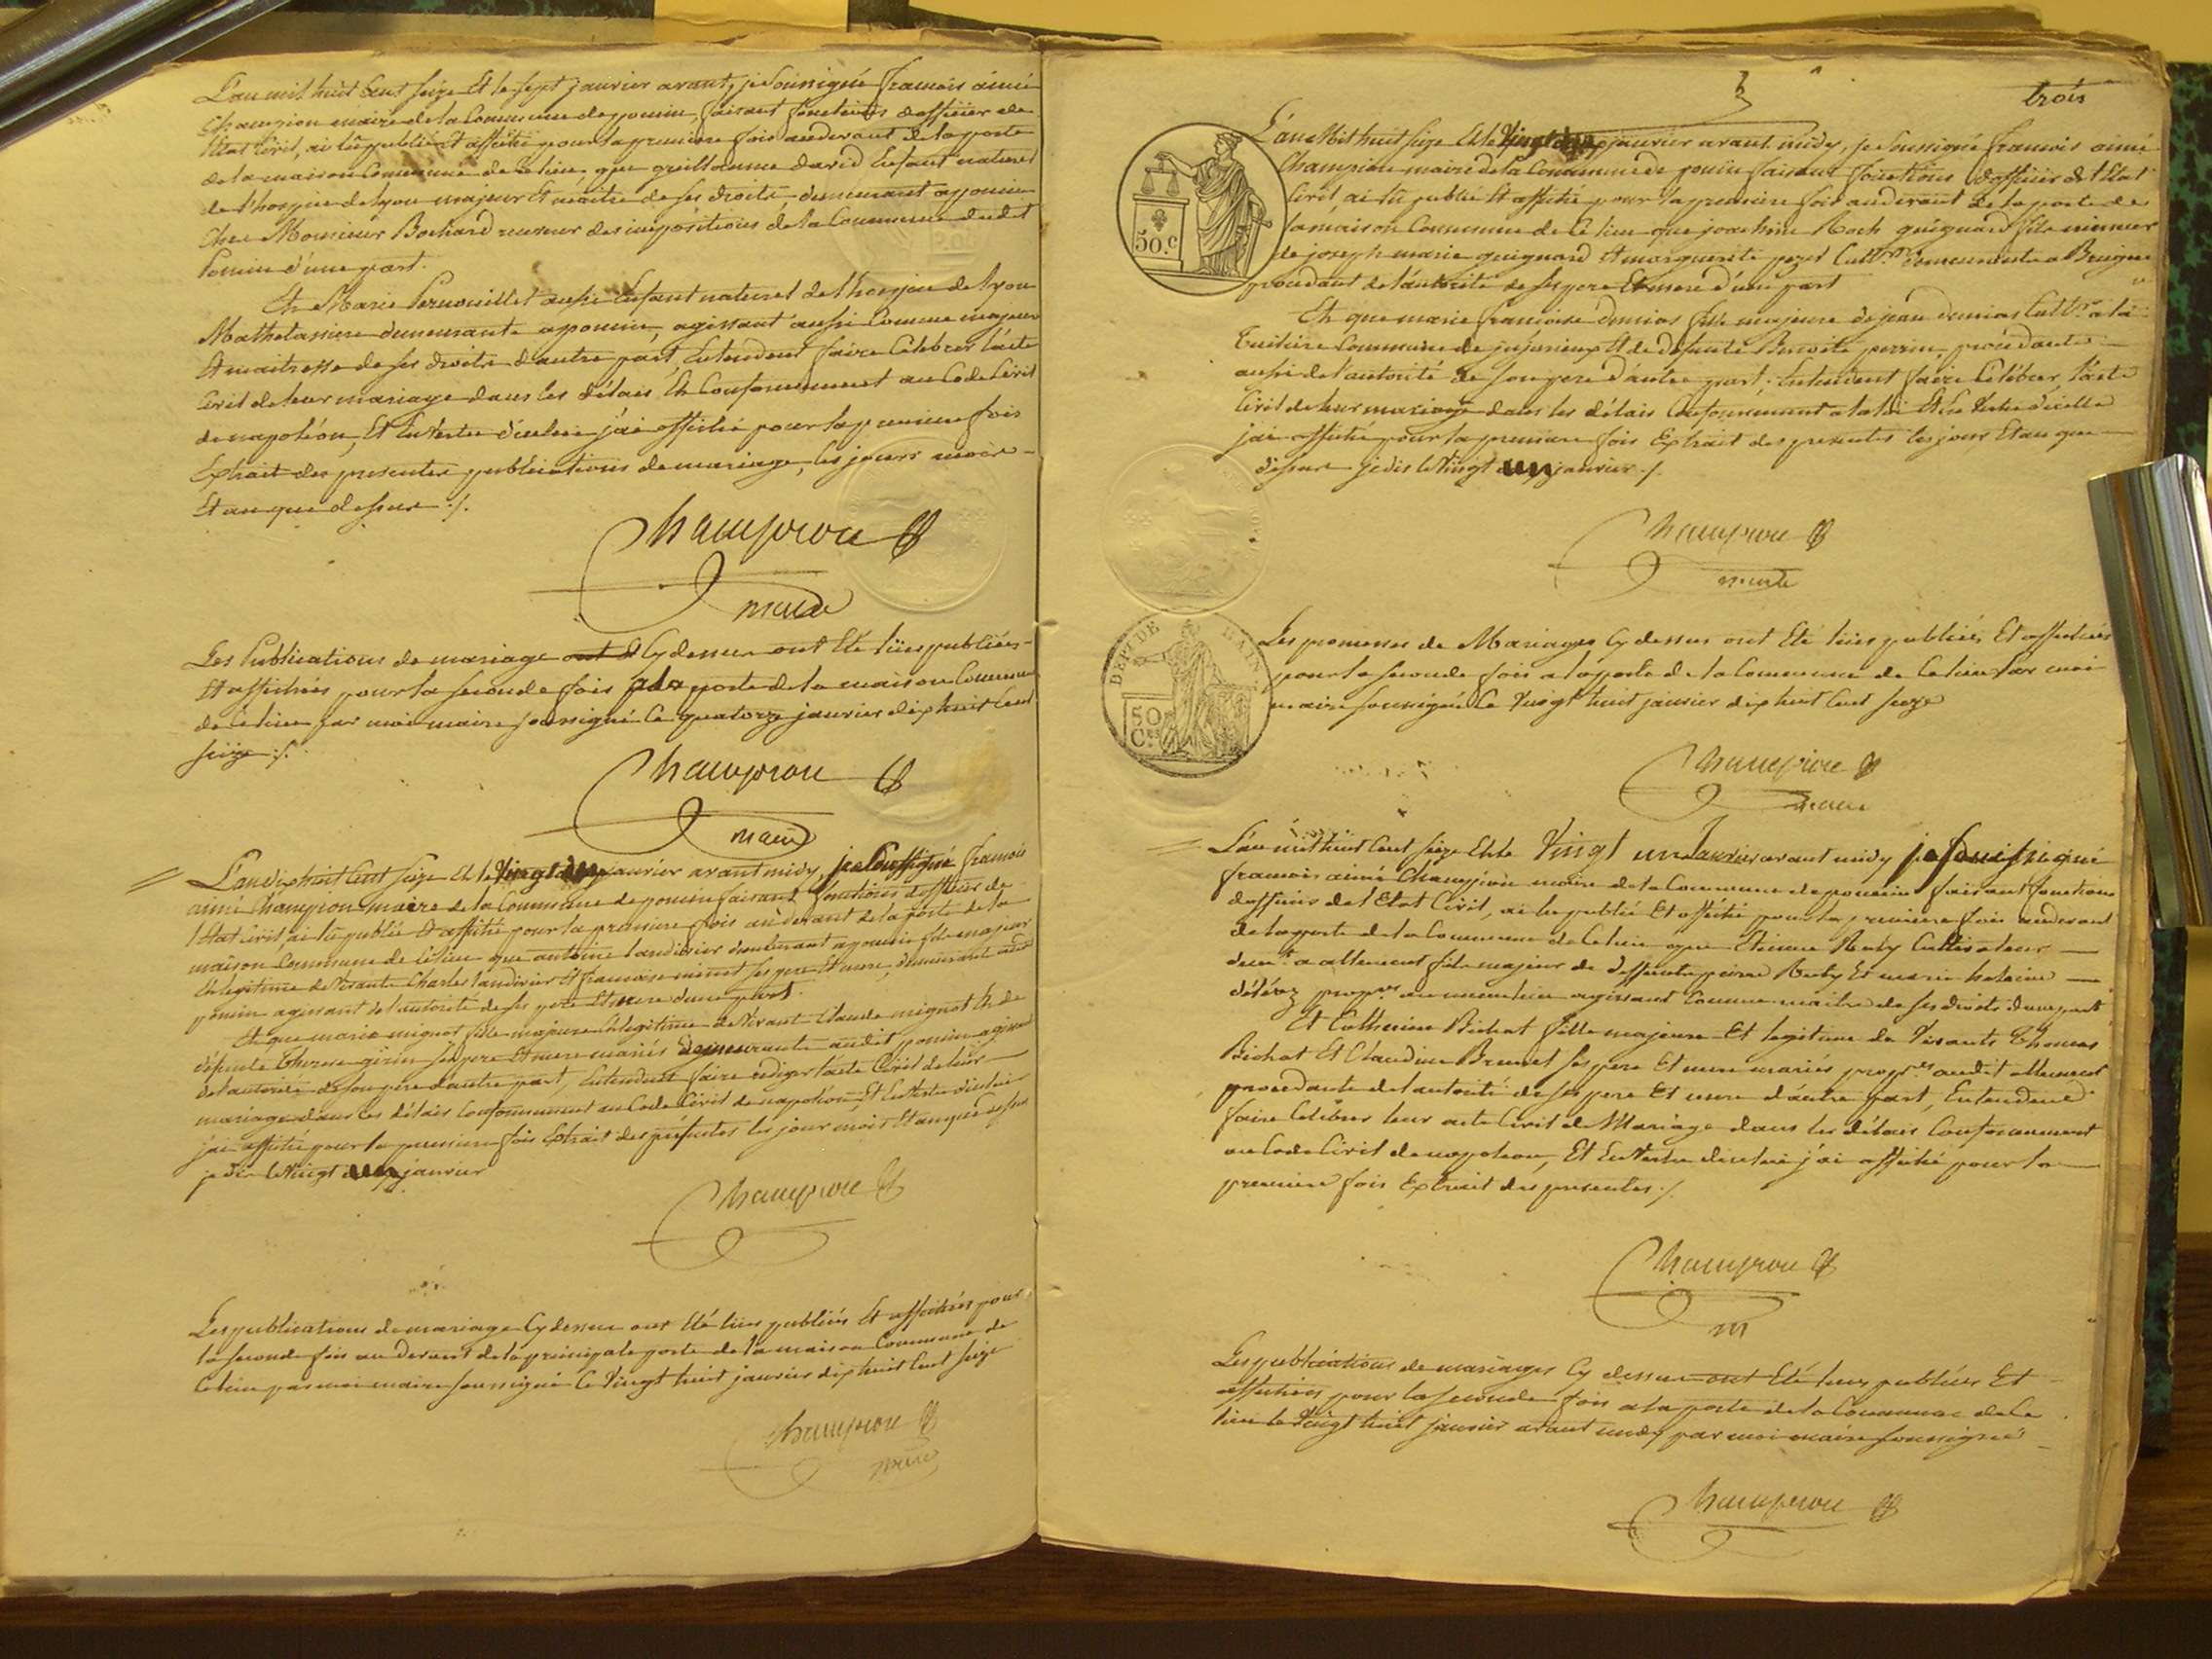 L'an mil huit Cent seize Et le sept janvier avant, je soussigné francois aimé
Champion maire de la Commune de poncin, faisant fonctions d'officier de
l'état Civil, ai lû publié et affiché pour la premiere fois audevant de la porte
de la maison Commune de ce lieu, que guillaume david Enfant naturel
de l'hospice de lyon majeur et maitre de ses droits, demeurant a poncin
Chez Monsieur Bochard receveur des impositions de la Commune dudit
Poncin d'une part.
Et Marie Pernouillet aussi Enfant naturel de l'hospice de lyon
Mathelassiere demeurante a poncin, agissant aussi Comme majeure
et maitresse de ses droits d'autre part, Entendent faire Celebrer l'acte
Civil de leur mariage dans les délais Et Conformement au Code Civil
de napoléon, Et En vertu d'icelui j'ai affiché pour la premiere fois
Extrait des presentes publications de mariage, les jours mois
Et an que dessus ./.
Champion
maire
Les Publications de mariage Cy dessus ont Eté lües publiées
Et affichées pour la seconde fois a la porte de la maison Commune
de ce lieu par moi maire soussigné le quatorze janvier dix huit Cent
seize ./.
Champion
maire
L'an dix huit Cent seize Et le Vingt un janvier avant midy, je soussigné francois
aimé Champion maire de la Commune de poncin faisant fonctions d'officier de
l'état Civil ai lû publié Et affiché pour la premiere fois au devant de la porte de la
maison Commune de ce lieu que antoine tandivier demeurant a poncin fils majeur
Et legitime de vivants Charles tandivier Et francoise ses pere Et mere, demeurant audit
poncin agissant de l'autorité de ses pere Et mere d'une part.
Et que marie mignot fille majeure Et legitime de vivant Claude mignot Et de
défunte Therese girin ses pere Et mere mariés demeurante audit poncin agissant
de l'autorité de son pere d'autre part, Entendent faire rediger l'acte Civil de leur
mariage dans les délais Conformement au Code Civil de napoléon, Et En vertu d'icelui
j'ai affiché pour la premiere fois Extrait des presentes les jour mois Et an que dessus
je dis le Vingt un janvier
Champion
Les publications de mariage Cy dessus ont Eté lües publiées Et affichées pour
la seconde fois au devant de la principale porte de la maison Commune de
ce lieu par moi maire soussigné le Vingt huit janvier dix huit Cent seize
Champion
maire
3
trois
L'an Mil huit seize Et le Vingt un janvier avant midy, je soussigné francois aimé
Champion maire de la Commune de poncin faisant fonctions d'officier de l'Etat
Civil, ai lû publié Et affiché pour la premiere fois audevant de la porte de
la maison Commune de ce lieu que joachim Roch guignard fils mineur
de joseph marie guignard Et marguerite Cult.rs demeurants a
procedant de l'autorité de ses pere Et mere d'une part
Et que marie francoise Demias fille majeure de jean demias Cult.r a la
Commune de jujurieux Et de defunte Benoite perrin, procedante
aussi de l'autorité de son pere d'autre part. Entendent faire Celebrer l'acte
Civil de leur mariage dans les délais Conformement a la loi Et En vertu d'icelle
j'ai affiché pour la premiere fois Extrait des presentes les jours Et an que
dessus je dis le Vingt un janvier ./.
50.c
Champion
maire
Les promesses de Mariages Cy dessus ont Eté lües publiées Et affichées
pour la seconde fois a la porte de la Commune de ce lieu par moi
maire soussigné le Vingt huit janvier dix huit Cent seize
DEP.T DE L'AIN.
50
C.es
Champion
maire
L'an mil huit Cent seize Et le Vingt un Janvier avant midy je soussigné
francois aimé Champion maire de la Commune de poncin faisant fonctions
d'officier de l'Etat Civil, ai lu publié Et affiché pour la premiere fois audevant
de la porte de la Commune de ce lieu que Etienne Ruby Cultivateur
dem.t a allement fils majeur de deffunt pierre Ruby Et marie
propr.es au meme lieu agissant Comme maitre de ses droits d'une part
Et Catherine Bichat fille majeure Et legitime de vivants Thomas
Bichat Et Claudine Brunet ses pere Et mere mariés prop.res audit allement
procedante de l'autorité de ses pere Et mere d'autre part, Entendent
faire Celebrer leur acte Civil de Mariage dans les délais Conformement
au Code Civil de napoleon, Et En vertu d'icelui j'ai affiché pour la
premiere fois Extrait des presentes ./.
Champion
m
Les publications de mariages Cy dessus ont Eté lues publiées Et
affichées pour la seconde fois a la porte de la Commune de ce
lieu le Vingt huit janvier avant midy par moi maire soussigné
Champion